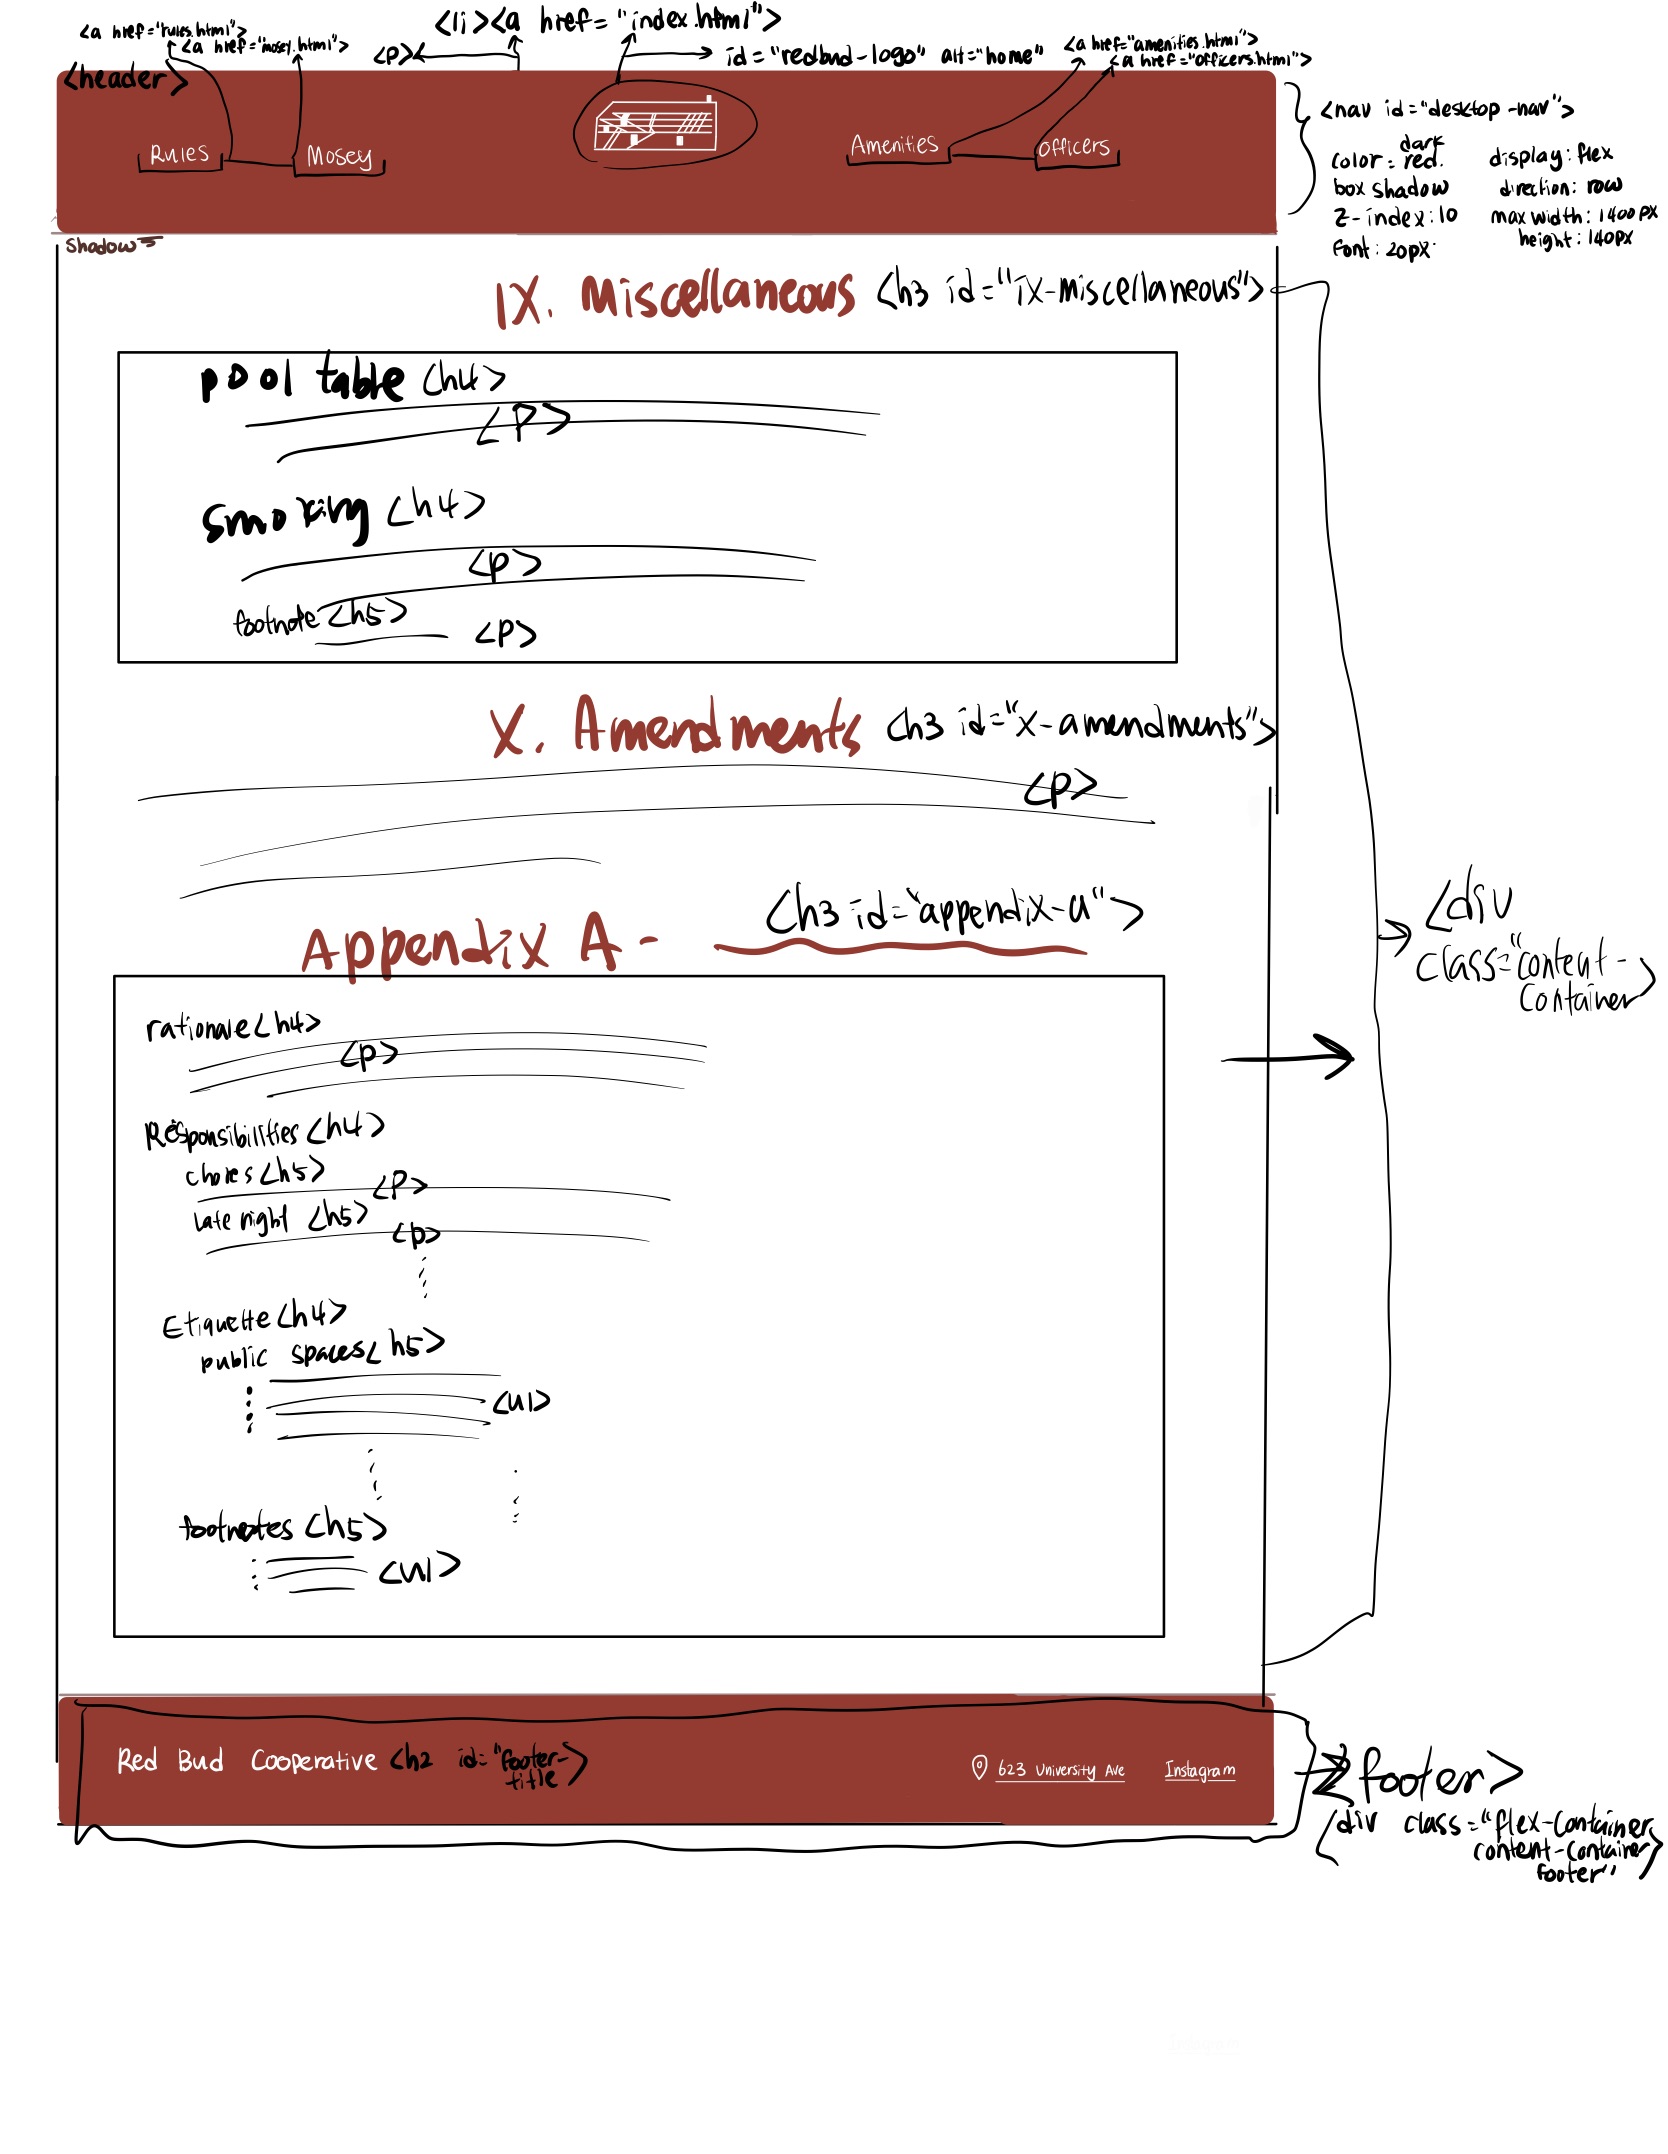 <a href="rules.html">
<a href="mosey.html">
<li><a href="index.html">
<p>
id="redbud-logo" alt="home"
<a href="amenities.html">
<a href="officers.html">
<header>
Rules
Mosey
Amenities
Officers
<nav id="desktop-nav">
color: dark red.
box shadow
z-index: 10
font: 20px
display: flex
direction: row
max width: 1400px
height: 140px
Shadow
IX. Miscellaneous <h3 id="ix-miscellaneous">
pool table <h4>
<p>
smoking <h4>
<p>
footnote <h5>
<p>
X. Amendments <h3 id="x-amendments">
<p>
<h3 id="appendix-a">
Appendix A -
<div
class="content-
container>
rationale <h4>
<p>
Responsibilities <h4>
chores <h5>
<p>
late night <h5>
<p>
Etiquette <h4>
public spaces <h5>
<ul>
footnotes <h5>
<ul>
Red Bud Cooperative <h2 id="footer-
title>
623 University Ave
Instagram
<footer>
<div class="flex-container
content-container
footer">